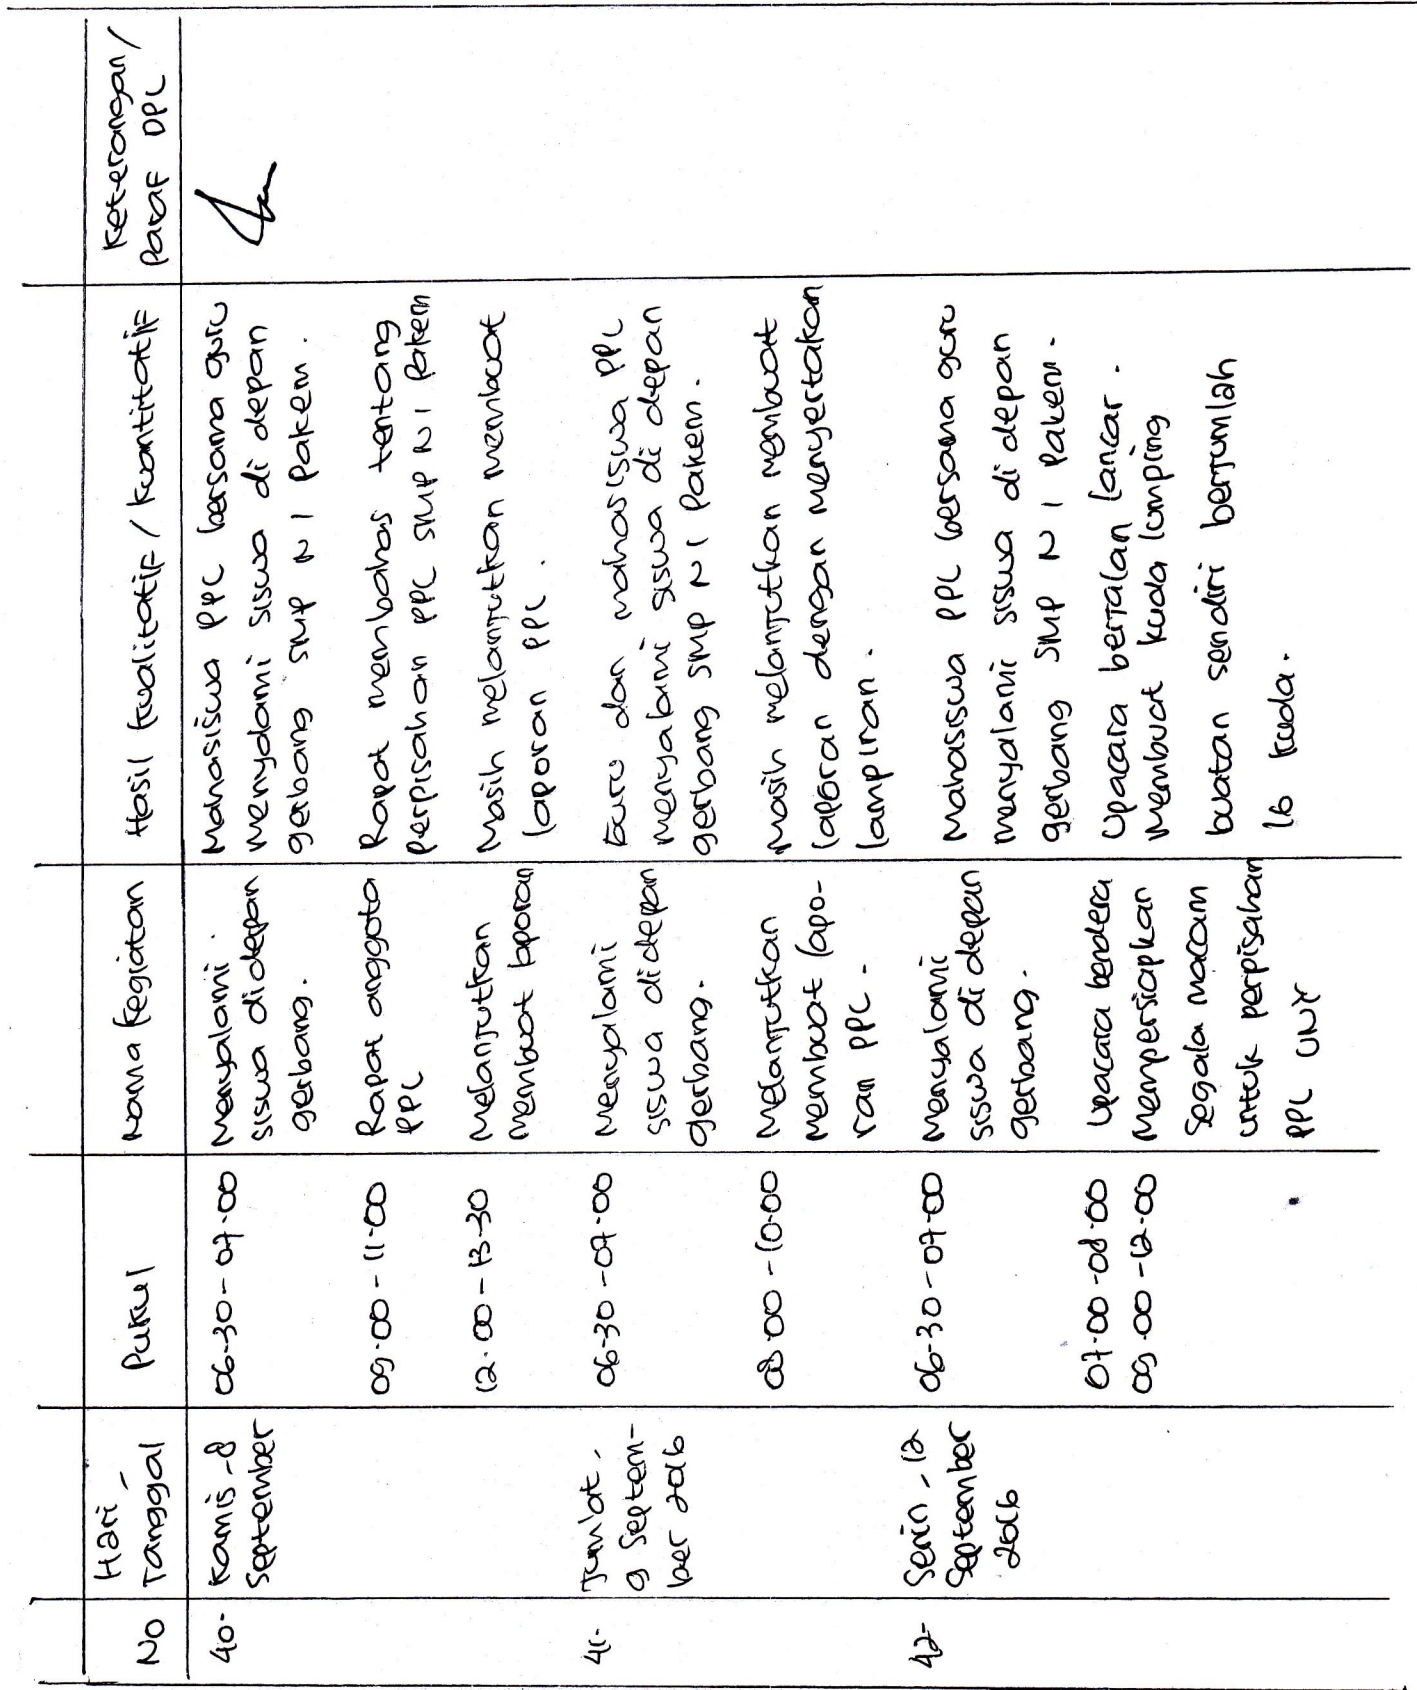 No
Hari,
Tanggal
Pukul
Nama Kegiatan
Hasil kualitatif / kuantitatif
Keterangan /
Paraf DPL
40.
Kamis, 8
September
06.30 - 07.00
Menyalami
siswa di depan
gerbang.
Mahasiswa PPL bersama guru
menyalami siswa di depan
gerbang SMP N 1 Pakem.
09.00 - 11.00
Rapat anggota
PPL
Rapat membahas tentang
perpisahan PPL SMP N 1 Pakem
12.00 - 13.30
Melanjutkan
membuat laporan
Masih melanjutkan membuat
laporan PPL.
41.
Jumlat,
9 Septem-
ber 2016
06.30 - 07.00
Menyalami
siswa di depan
gerbang.
Guru dan mahasiswa PPL
menyalami siswa di depan
gerbang SMP N 1 Pakem.
08.00 - 10.00
Melanjutkan
membuat lapo-
ran PPL.
Masih melanjutkan membuat
laporan dengan menyertakan
lampiran.
42.
Senin, 12
September
2016
06.30 - 07.00
Menyalami
siswa di depan
gerbang.
Mahasiswa PPL bersama guru
menyalami siswa di depan
gerbang SMP N 1 Pakem.
07.00 - 08.00
Upacara bendera
Upacara berjalan lancar.
09.00 - 12.00
Mempersiapkan
segala macam
untuk perpisahan
PPL UNY
Membuat kuda lumping
buatan sendiri berjumlah
16 kuda.